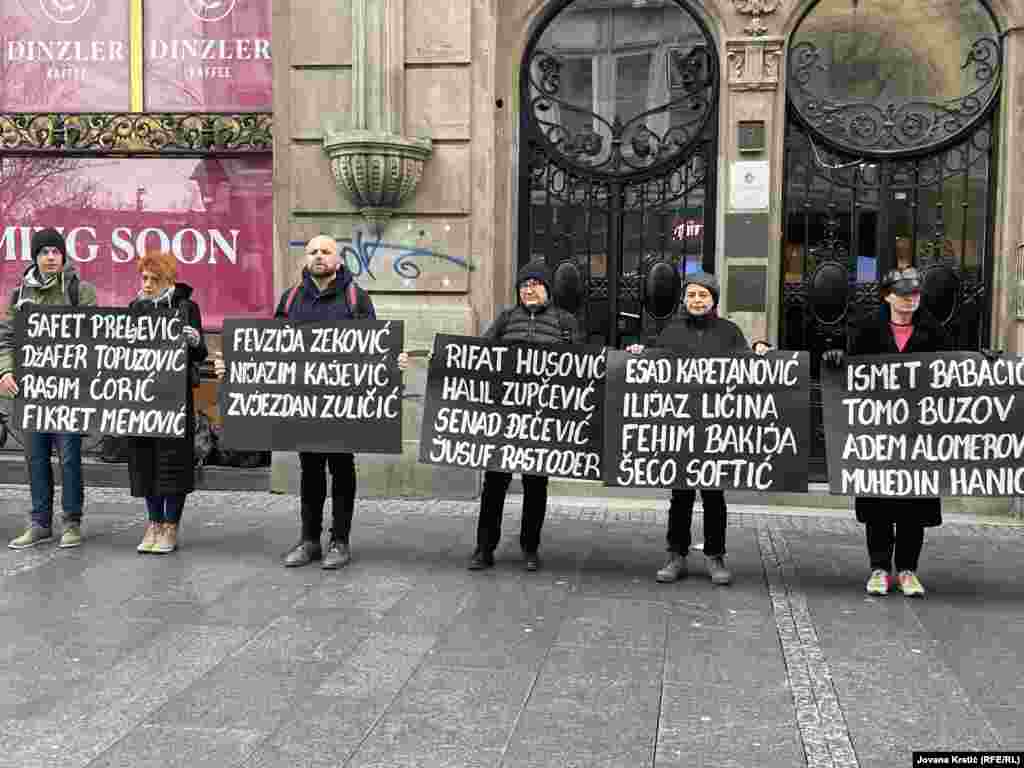 DINZLER
KAFFEE
DINZLER
KAFFEE
MING SOON
SAFET PRELJEVIĆ
DŽAFER TOPUZOVIĆ
RASIM ĆORIĆ
FIKRET MEMOVIĆ
FEVZIJA ZEKOVIĆ
NIJAZIM KAJEVIĆ
ZVJEZDAN ZULIČIĆ
RIFAT HUSOVIĆ
HALIL ZUPČEVIĆ
SENAD ĐEČEVIĆ
JUSUF RASTODER
ESAD KAPETANOVIĆ
ILIJAZ LIČINA
FEHIM BAKIJA
ŠEĆO SOFTIĆ
ISMET BABAČIĆ
TOMO BUZOV
ADEM ALOMEROV
MUHEDIN HANIĆ
Jovana Krstić (RFE/RL)